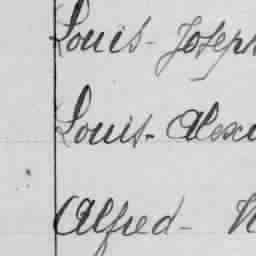 Louis - Joseph
Louis - Alex
Alfred -